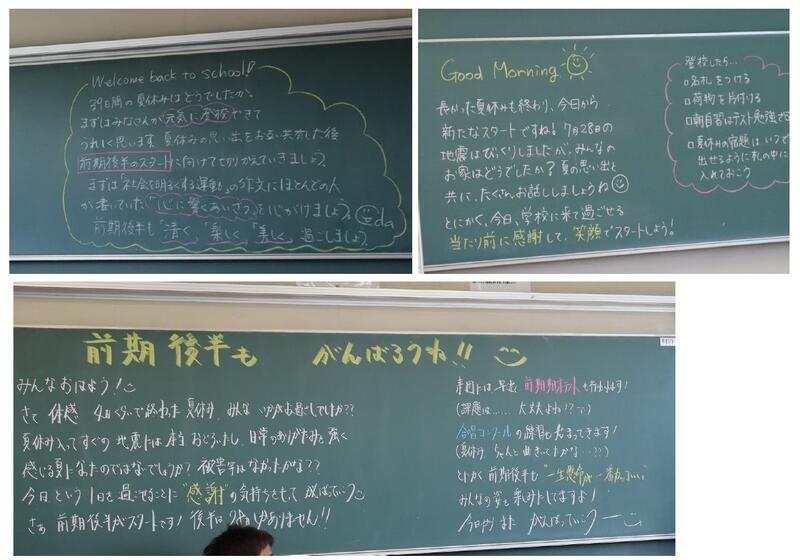 Welcome back to school!!
39日間の夏休みはどうでしたか。
まずはみなさんが元気に登校できて
うれしく思います。夏休みの思い出をお互い共有した後
前期後半のスタートに向けて切りかえていきましょう。
まずは「社会を明るくする運動」の作文にほとんどの人
が書いていた「心に響くあいさつ」を心がけましょう。
前期後半も「清く」「楽しく」「美しく」過ごしましょう。
Good Morning
長かった夏休みも終わり、今日から
新たなスタートですね!7月28日の
地震はびっくりしましたが、みんなの
お家はどうでしたか?夏の思い出と
共に、たくさんお話ししましょうね
とにかく、今日、学校に来て過ごせる
当たり前に感謝して、笑顔でスタートしよう!
登校したら…
名札をつける
荷物を片付ける
朝自習はテスト勉強
夏休みの宿題はいつで
出せるように机の中に
入れておこう
前期後半も がんばろうね!!
みんなおはよう!
さて 体感 4日くらいで終わった夏休み、みな いかがお過ごしでしたか??
夏休み入ってすぐの地震には本当おどろいたし、日常のありがたみを強く
感じる夏になったのではないでしょうか?被害等はなかったかな??
今日という1日を過ごせることに"感謝"の気持ちをもって がんばっていこう
さぁ 前期後半がスタートです!後半は
早速 前期期末テストも行われます!
(課題は…… 大丈夫よね!?
合唱コンクールの練習も始まってきます!
(夏休み ちゃんと曲きいてたかな…??)
とにかく前期後半も "一生懸命が一番かっこいい"
みんなの姿を楽しみにしてますよ!
がんばっていこうー